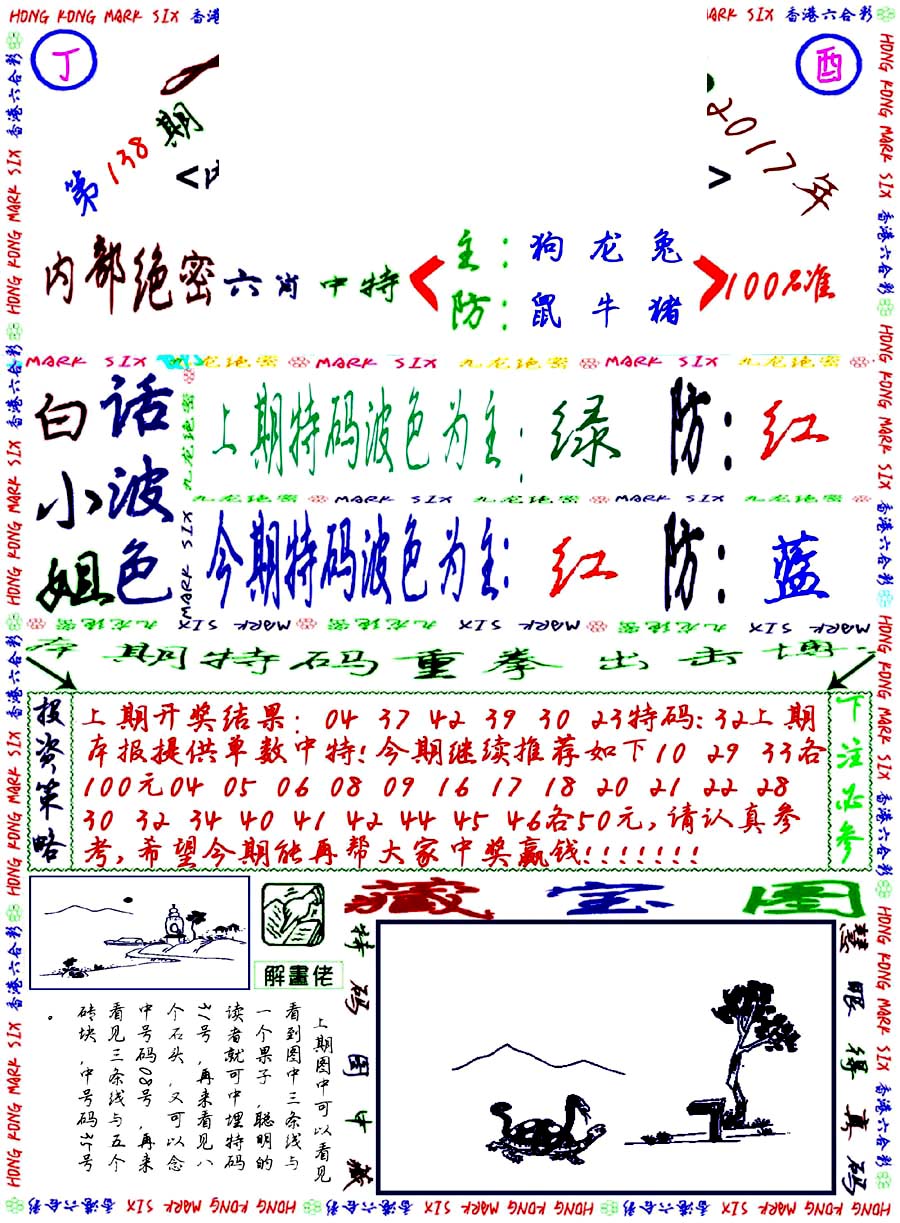 HONG KONG MARK SIX 香港
MARK SIX 香港六合彩
丁
酉
第138期
2017年
内部绝密六肖中特
主：狗 龙 兔
防：鼠 牛 猪
100%准
MARK SIX 九龙绝密 MARK SIX 九龙绝密 MARK SIX 九龙绝密
白小姐
话波色
上期特码波色为主：绿 防：红
九龙绝密 MARK SIX 九龙绝密 MARK SIX 九龙绝密
今期特码波色为主：红 防：蓝
本期特码重拳出击
投资策略
上期开奖结果：04 37 42 39 30 23特码：32上期
本报提供单数中特！今期继续推荐如下10 29 33各
100元04 05 06 08 09 16 17 18 20 21 22 28
30 32 34 40 41 42 44 45 46各50元，请认真参
考，希望今期能再帮大家中奖赢钱！！！！！！！
下注必参
藏宝图
解畫佬
特码图中藏
慧眼得真码
上期图中可以看见
看到图中三条线与
一个果子，聪明的
读者就可中埋特码
号，再来看见八
个石头，又可以念
中号码08号，再来
看见三条线与五个
砖块，中号码35号
。
HONG KONG MARK SIX 香港六合彩